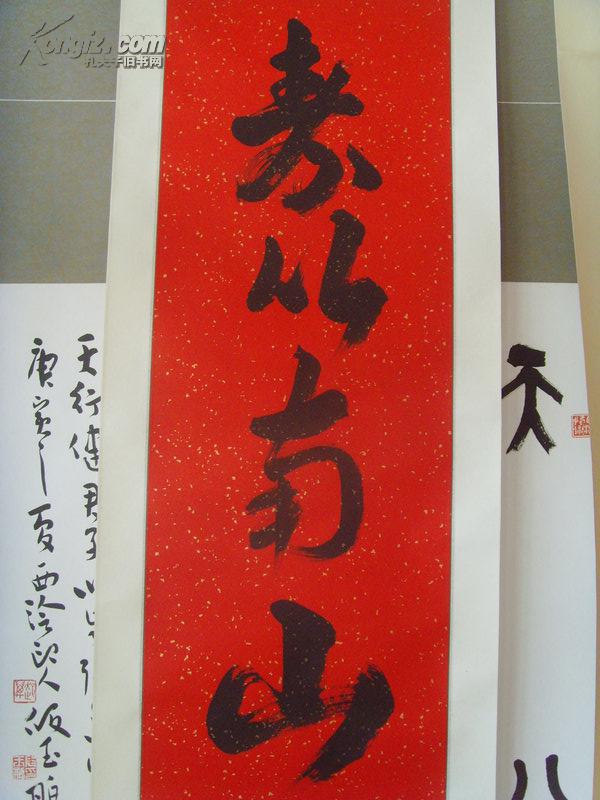 Kongfz.com
孔夫子旧书网
天
八
寿比南山
天行健君子以自强
庚寅之夏西泠